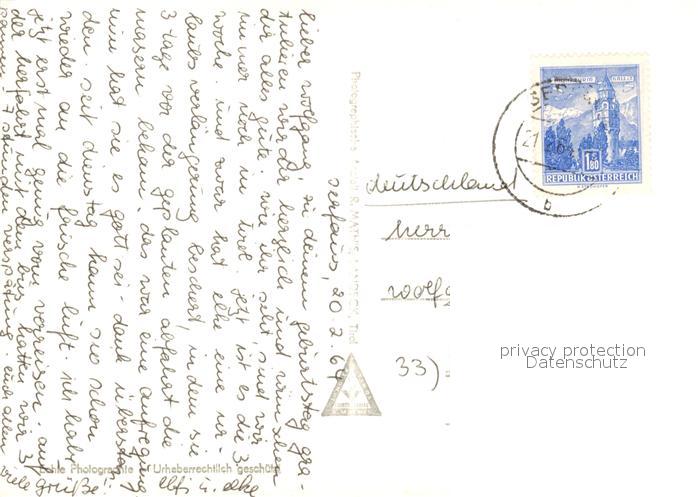 serfaus, 20.2.69
lieber wolfgang, zu deinem geburtstag gra-
tulieren wir dir herzlich und wünschen
dir alles gute. wie ihr seht, sind wir
immer noch in tirol. jetzt ist es die 3.
woche. und zwar hat elke eine ur-
laubsverlängerung beschert, in dem sie
3 tage vor der geplanten abfahrt die
masern bekam. das war eine aufregung
nun hat sie es gott-sei-dank überstan-
den. seit dienstag kann sie schon
wieder an die frische luft. ich habe
jetzt erst mal genug vom verreisen. auf
der herfahrt mit dem bus hatten wir 3
pannen, 7 stunden verspätung. euch allen
viele grüße!
elfi u. elke
Echte Photographie Urheberrechtlich geschützt
Photographische
Tirol
deutschland
herr
wolfg
33)
1.80
REPUBLIK ÖSTERREICH
b
privacy protection
Datenschutz